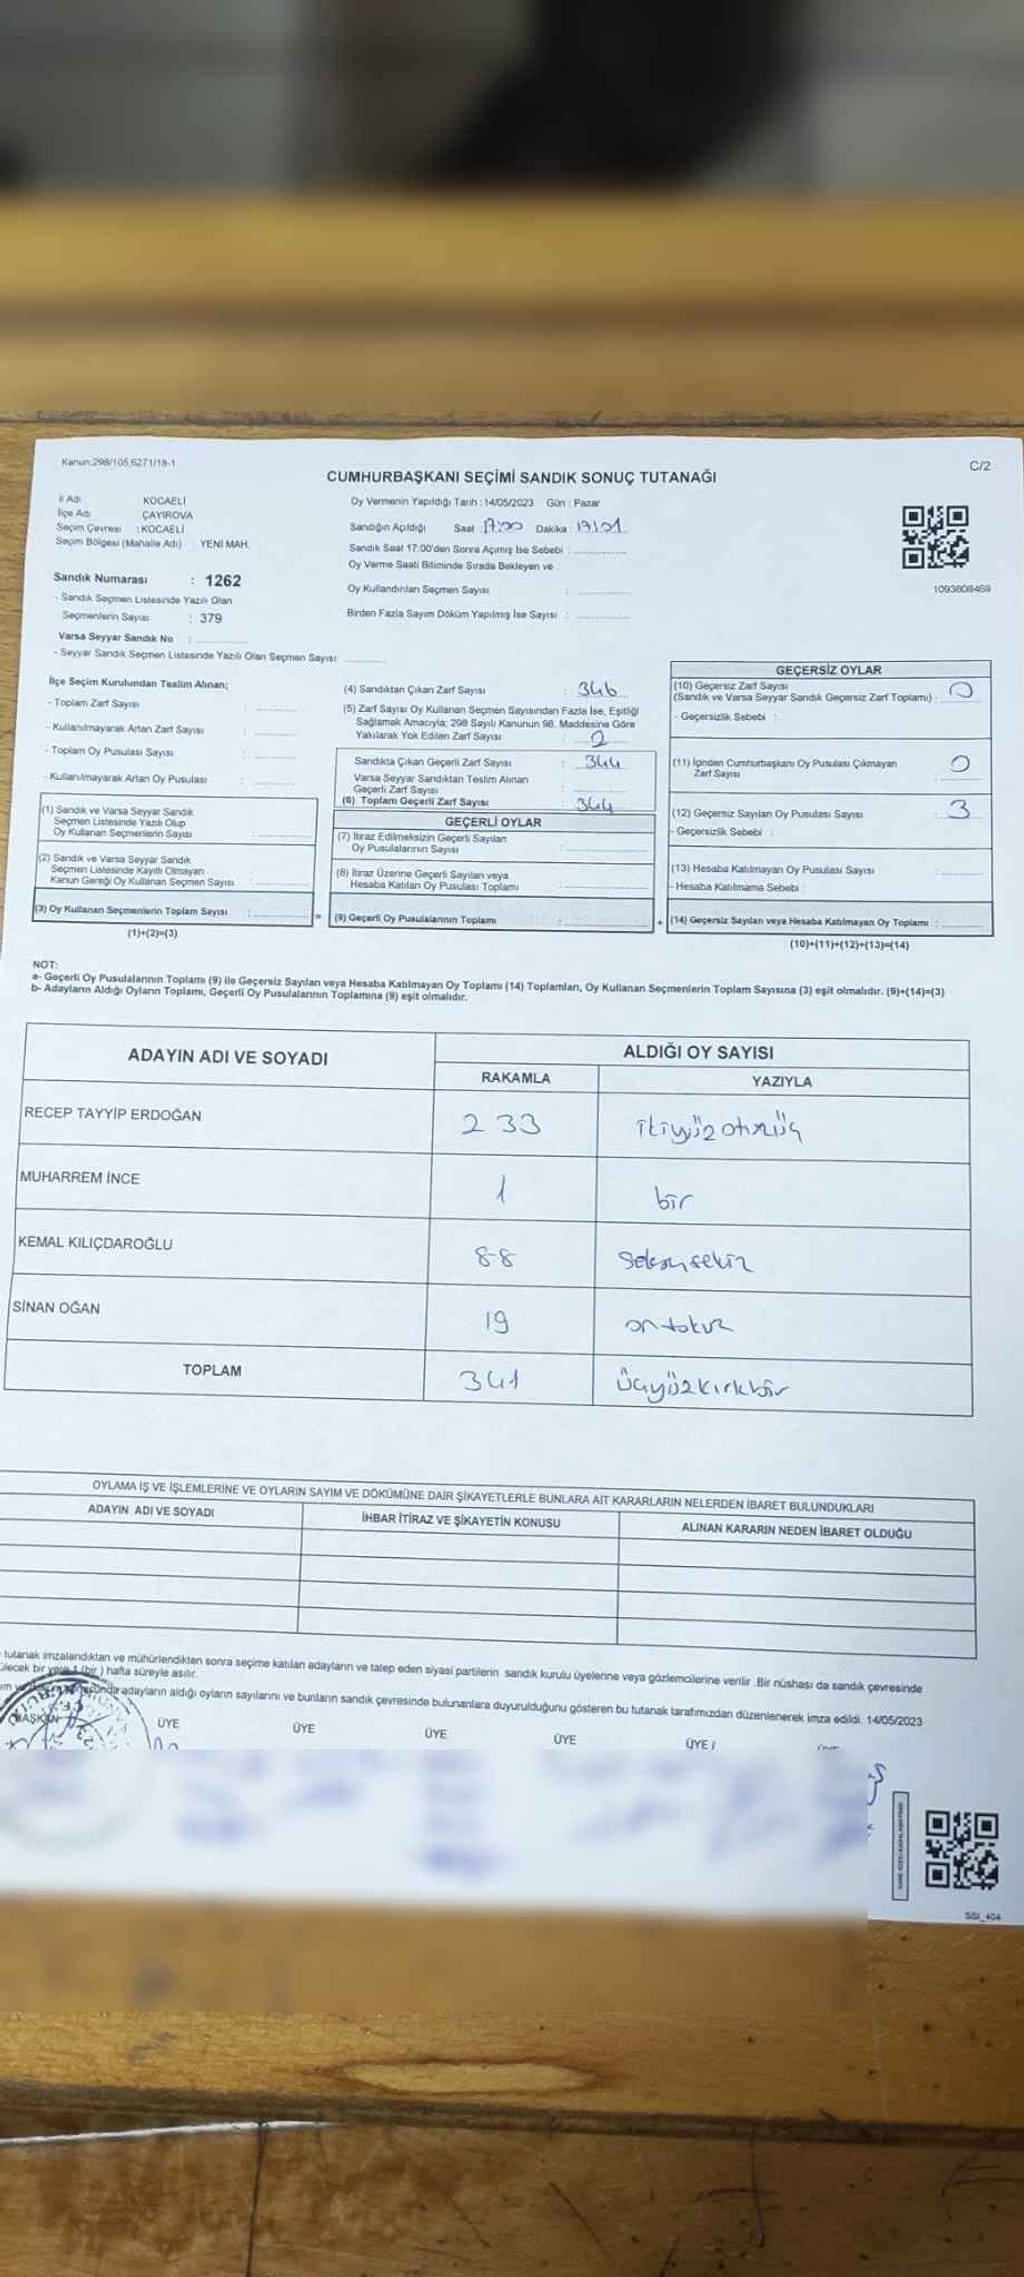 Kanun:298/105,6271/18-1
C/2
CUMHURBAŞKANI SEÇİMİ SANDIK SONUÇ TUTANAĞI
İl Adı KOCAELİ
İlçe Adı ÇAYIROVA
Seçim Çevresi : KOCAELİ
Seçim Bölgesi (Mahalle Adı) : YENİ MAH.
Sandık Numarası : 1262
- Sandık Seçmen Listesinde Yazılı Olan
Seçmenlerin Sayısı : 379
Varsa Seyyar Sandık No :
- Seyyar Sandık Seçmen Listesinde Yazılı Olan Seçmen Sayısı:
Oy Vermenin Yapıldığı Tarih : 14/05/2023 Gün : Pazar
Sandığın Açıldığı Saat : 17:00 Dakika :
Sandık Saat 17:00'den Sonra Açılmış İse Sebebi :
Oy Verme Saati Bitiminde Sırada Bekleyen ve
Oy Kullandırılan Seçmen Sayısı :
Birden Fazla Sayım Döküm Yapılmış İse Sayısı :
1093808469
İlçe Seçim Kurulundan Teslim Alınan;
- Toplam Zarf Sayısı :
- Kullanılmayarak Artan Zarf Sayısı :
- Toplam Oy Pusulası Sayısı :
- Kullanılmayarak Artan Oy Pusulası :
(1) Sandık ve Varsa Seyyar Sandık
Seçmen Listesinde Yazılı Olup
Oy Kullanan Seçmenlerin Sayısı :
(2) Sandık ve Varsa Seyyar Sandık
Seçmen Listesinde Kayıtlı Olmayan
Kanun Gereği Oy Kullanan Seçmen Sayısı :
(3) Oy Kullanan Seçmenlerin Toplam Sayısı :
(1)+(2)=(3)
(4) Sandıktan Çıkan Zarf Sayısı : 346
(5) Zarf Sayısı Oy Kullanan Seçmen Sayısından Fazla İse, Eşitliği
Sağlamak Amacıyla; 298 Sayılı Kanunun 98. Maddesine Göre
Yakılarak Yok Edilen Zarf Sayısı : 2
Sandıkta Çıkan Geçerli Zarf Sayısı : 344
Varsa Seyyar Sandıktan Teslim Alınan
Geçerli Zarf Sayısı :
(6) Toplam Geçerli Zarf Sayısı : 344
GEÇERLİ OYLAR
(7) İtiraz Edilmeksizin Geçerli Sayılan
Oy Pusulalarının Sayısı :
(8) İtiraz Üzerine Geçerli Sayılan veya
Hesaba Katılan Oy Pusulası Toplamı :
= (9) Geçerli Oy Pusulalarının Toplamı :
GEÇERSİZ OYLAR
(10) Geçersiz Zarf Sayısı
(Sandık ve Varsa Seyyar Sandık Geçersiz Zarf Toplamı) : 0
- Geçersizlik Sebebi :
(11) İçinden Cumhurbaşkanı Oy Pusulası Çıkmayan
Zarf Sayısı : 0
(12) Geçersiz Sayılan Oy Pusulası Sayısı : 3
- Geçersizlik Sebebi :
(13) Hesaba Katılmayan Oy Pusulası Sayısı :
- Hesaba Katılmama Sebebi :
+ (14) Geçersiz Sayılan veya Hesaba Katılmayan Oy Toplamı :
(10)+(11)+(12)+(13)=(14)
NOT:
a- Geçerli Oy Pusulalarının Toplamı (9) ile Geçersiz Sayılan veya Hesaba Katılmayan Oy Toplamı (14) Toplamları, Oy Kullanan Seçmenlerin Toplam Sayısına (3) eşit olmalıdır. (9)+(14)=(3)
b- Adayların Aldığı Oyların Toplamı, Geçerli Oy Pusulalarının Toplamına (9) eşit olmalıdır.
ADAYIN ADI VE SOYADI
ALDIĞI OY SAYISI
RAKAMLA YAZIYLA
RECEP TAYYİP ERDOĞAN 233 ikiyüzotuzüç
MUHARREM İNCE 1 bir
KEMAL KILIÇDAROĞLU 88 seksensekiz
SİNAN OĞAN 19 ondokuz
TOPLAM 341 üçyüzkırkbir
OYLAMA İŞ VE İŞLEMLERİNE VE OYLARIN SAYIM VE DÖKÜMÜNE DAİR ŞİKAYETLERLE BUNLARA AİT KARARLARIN NELERDEN İBARET BULUNDUKLARI
ADAYIN ADI VE SOYADI İHBAR İTİRAZ VE ŞİKAYETİN KONUSU ALINAN KARARIN NEDEN İBARET OLDUĞU
tutanak imzalandıktan ve mühürlendikten sonra seçime katılan adayların ve talep eden siyasi partilerin sandık kurulu üyelerine veya gözlemcilerine verilir. Bir nüshası da sandık çevresinde
bir yere 1 (bir) hafta süreyle asılır.
adayların aldığı oyların sayılarını ve bunların sandık çevresinde bulunanlara duyurulduğunu gösteren bu tutanak tarafımızdan düzenlenerek imza edildi. 14/05/2023
BAŞKAN ÜYE ÜYE ÜYE ÜYE ÜYE
SSI_404